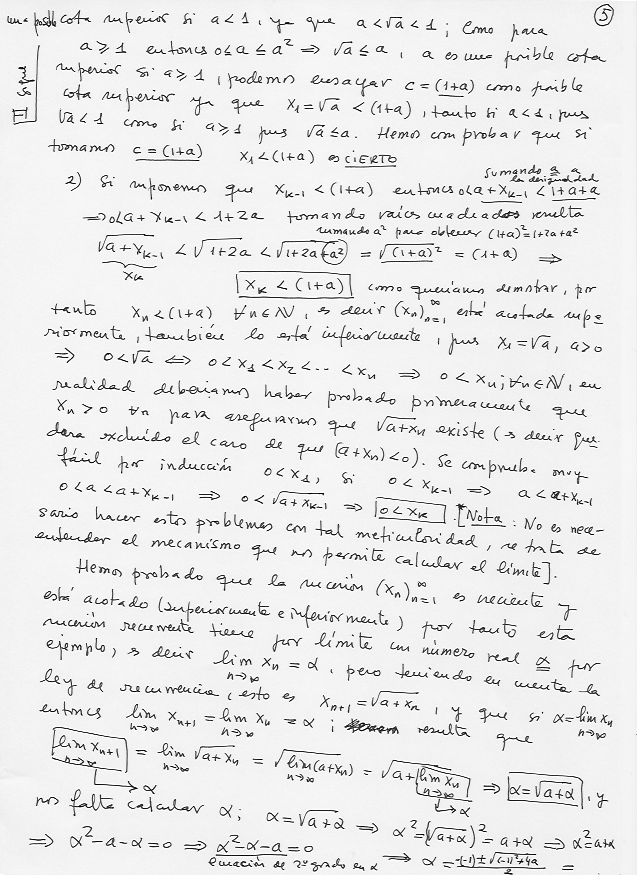 una posible cota superior si a<1, ya que a<√a<1; Como para ⑤
a≥1 entonces 0≤a≤a² ⟹ √a≤a, a es una posible cota
superior si a≥1, podemos ensayar c=(1+a) como posible
cota superior ya que x₁=√a<(1+a), tanto si a<1, pues
√a<1 como si a≥1 pues √a≤a. Hemos comprobar que si
tomamos c=(1+a) x₁<(1+a) es CIERTO
sumando a a
la desigualdad
2) Si suponemos que x_{k-1}<(1+a) entonces 0<a+x_{k-1}<1+a+a
⟹ 0<a+x_{k-1}<1+2a tomando raíces cuadradas resulta
sumando a² para obtener (1+a)²=1+2a+a²
√(a+x_{k-1})<√(1+2a)<√(1+2a+a²)=√((1+a)²)=(1+a) ⟹
x_k
x_k<(1+a) como queríamos demostrar, por
tanto x_n<(1+a) ∀n∈ℕ, es decir (x_n)_{n=1}^∞ está acotada supe-
riormente, también lo está inferiormente, pues x₁=√a, a>0
⟹ 0<√a ⟺ 0<x₁<x₂<--<x_n ⟹ 0<x_n; ∀n∈ℕ, en
realidad deberíamos haber probado primeramente que
x_n>0 ∀n para asegurarnos que √(a+x_n) existe (es decir que-
dara excluído el caso de que (a+x_n)<0). Se comprueba muy
fácil por inducción 0<x₁, si 0<x_{k-1} ⟹ a<a+x_{k-1}
0<a<a+x_{k-1} ⟹ 0<√(a+x_{k-1}) ⟹ 0<x_k. *[Nota: No es nece-
sario hacer estos problemas con tal meticulosidad, se trata de
entender el mecanismo que nos permite calcular el límite].
Hemos probado que la sucesión (x_n)_{n=1}^∞ es creciente y
está acotado (superiormente e inferiormente) por tanto esta
sucesión recurrente tiene por límite un número real α por
ejemplo, es decir lim_{n→∞} x_n=α, pero teniendo en cuenta la
ley de recurrencia, esto es x_{n+1}=√(a+x_n), y que si α=lim_{n→∞} x_n
entonces lim_{n→∞} x_{n+1}=lim_{n→∞} x_n=α; resulta que
lim_{n→∞} x_{n+1}=lim_{n→∞} √(a+x_n)=√(lim_{n→∞}(a+x_n))=√(a+lim_{n→∞} x_n) ⟹ α=√(a+α), y
→α →α
nos falta calcular α; α=√(a+α) ⟹ α²=(√(a+α))²=a+α ⟹ α²=a+α
⟹ α²-a-α=0 ⟹ α²-α-a=0 ⟹ α=(-(-1)±√((-1)²+4a))/2 =
ecuación de 2º grado en α